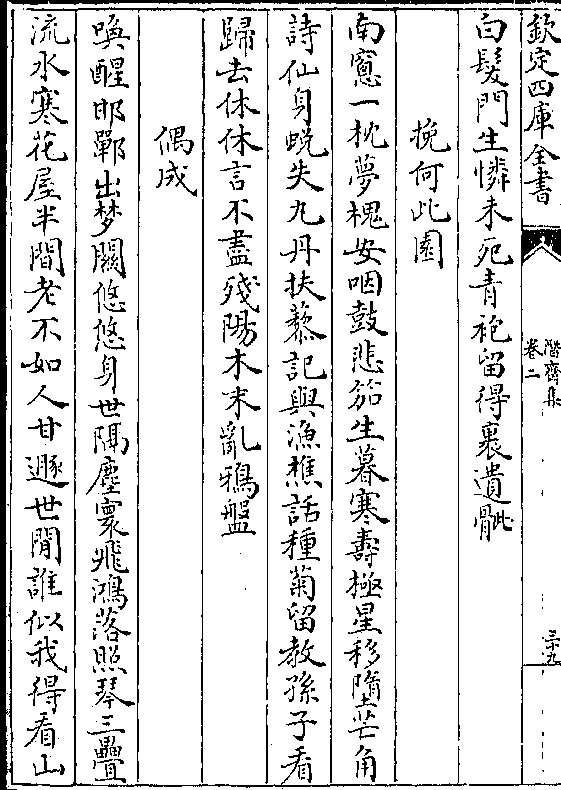 欽定四庫全書
潛齋集
卷二
三十九
白髮門生憐未死青袍留得裹遺骴
挽何此園
南窻一枕夢槐安咽鼓悲笳生暮寒壽極星移墮芒角
詩仙身蛻失九丹扶藜記與漁樵話種菊留教孫子看
歸去休休言不盡殘陽木末亂鴉盤
偶成
喚醒邯鄲出梦關悠悠身世隔塵寰飛鴻落照琴三疊
流水寒花屋半間老不如人甘遯世閒誰似我得看山